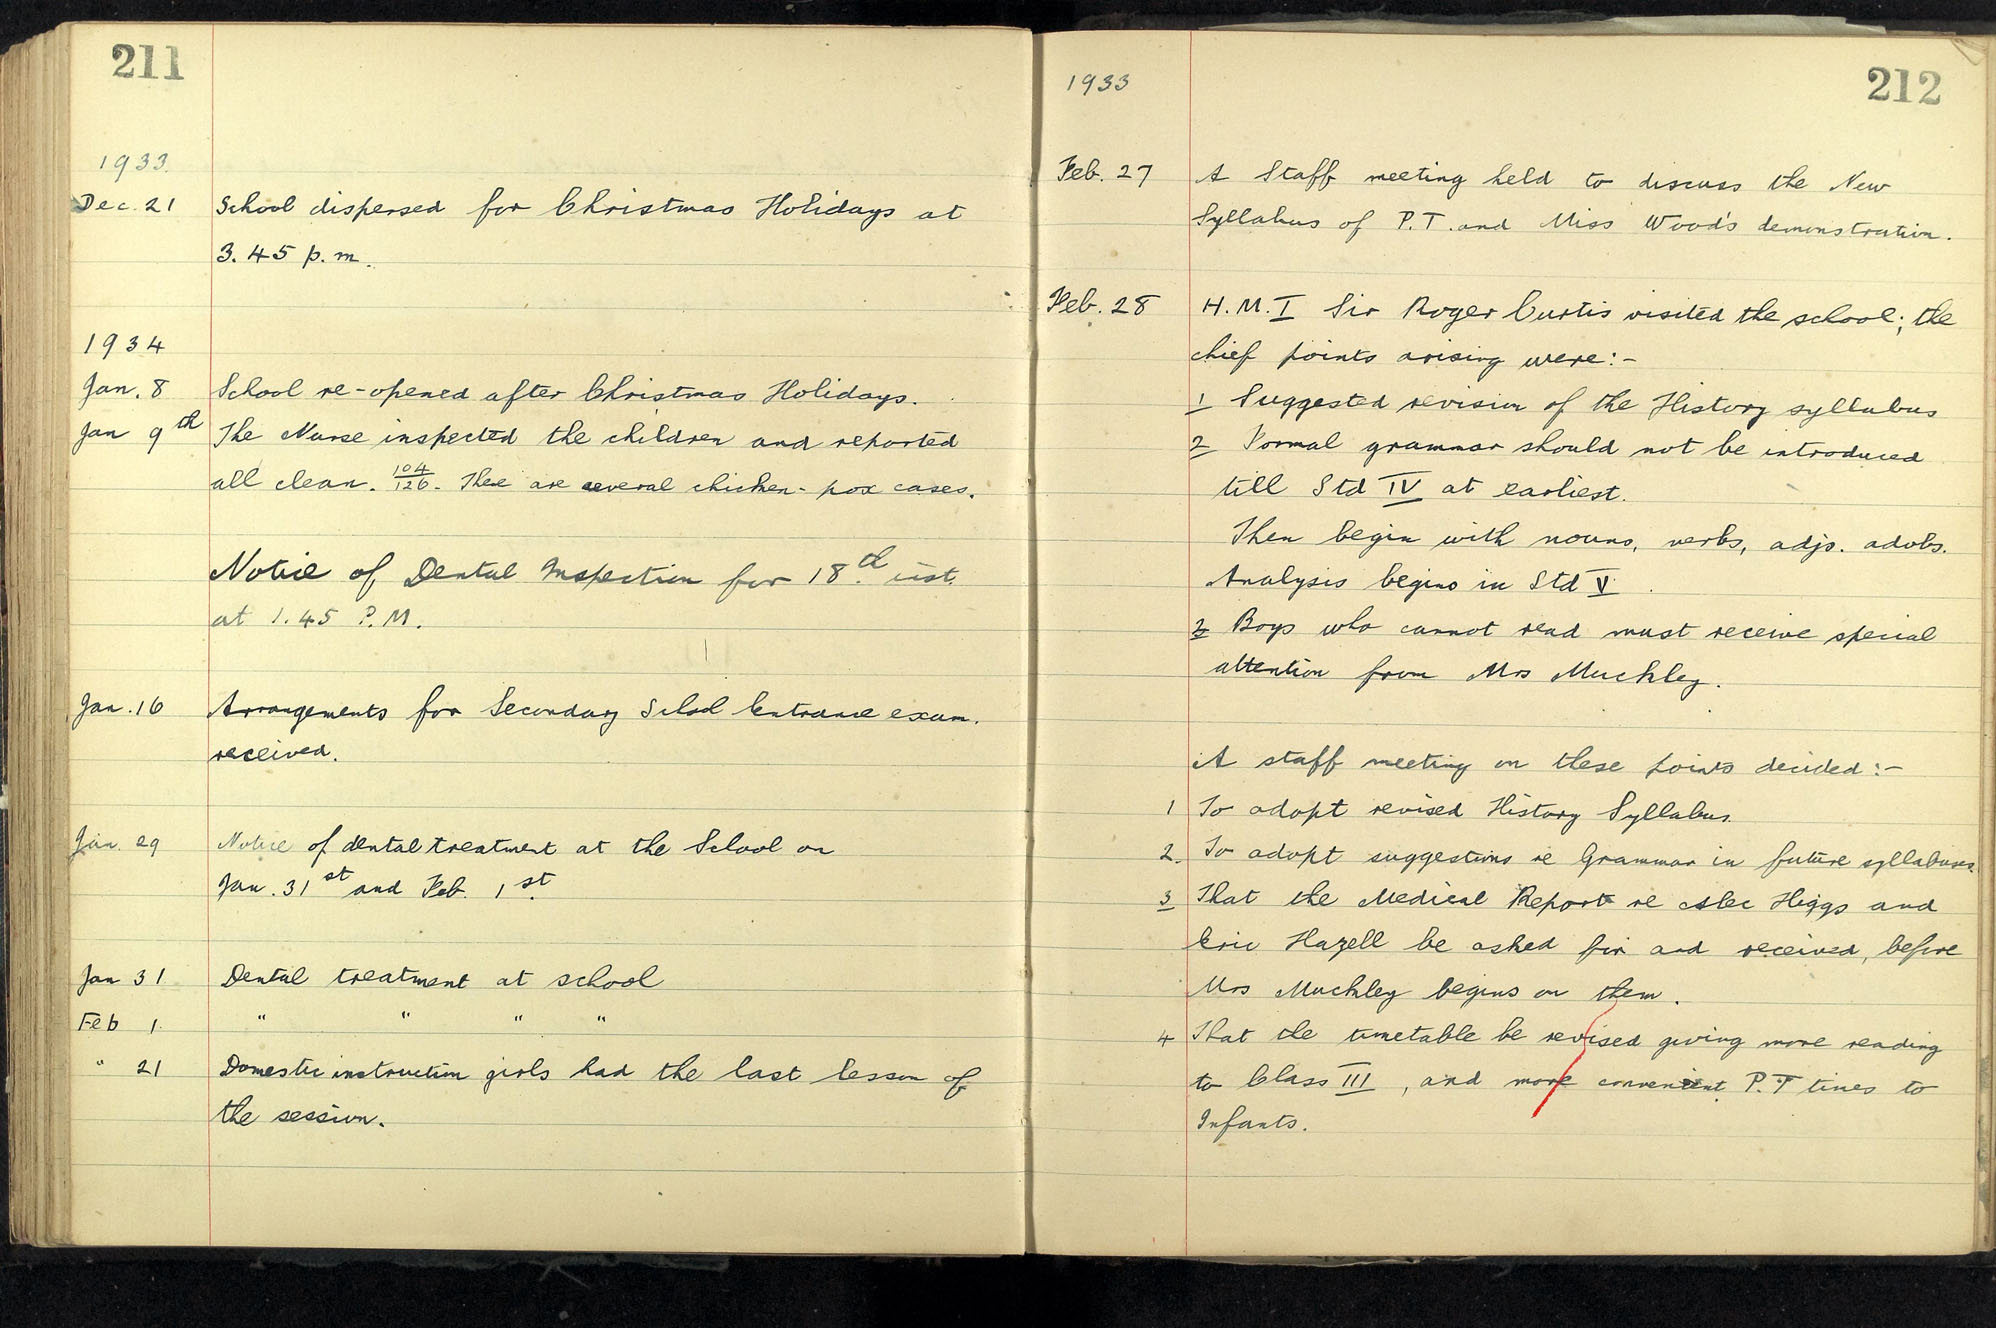 211
1933.
Dec. 21 School dispersed for Christmas Holidays at
3.45 p.m.
1934
Jan. 8 School re-opened after Christmas Holidays.
Jan 9th The Nurse inspected the children and reported
all clean. 104/126. There are several chicken-pox cases.
Notice of Dental Inspection for 18th inst.
at 1.45 P.M.
Jan. 16 Arrangements for Secondary School Entrance exam.
received.
Jan. 29 Notice of dental treatment at the School on
Jan. 31st and Feb. 1st.
Jan 31 Dental treatment at school
Feb 1. " " " "
" 21 Domestic instruction girls had the last lesson of
the session.
1933
212
Feb. 27 A Staff meeting held to discuss the New
Syllabus of P.T. and Miss Wood's demonstration.
Feb. 28 H.M.I Sir Roger Curtis visited the school; the
chief points arising were:-
1 Suggested revision of the History syllabus
2 Formal grammar should not be introduced
till Std IV at earliest.
Then begin with nouns, verbs, adjs. advbs.
Analysis begins in Std V.
3 Boys who cannot read must receive special
attention from Mrs Muckley.
A staff meeting on these points decided:-
1 To adopt revised History Syllabus.
2. To adopt suggestions re Grammar in future syllabuses.
3 That the Medical Report re Alec Higgs and
Eric Hazell be asked for and received, before
Mrs Muckley begins on them.
4 That the timetable be revised giving more reading
to Class III, and more convenient P.T times to
Infants.